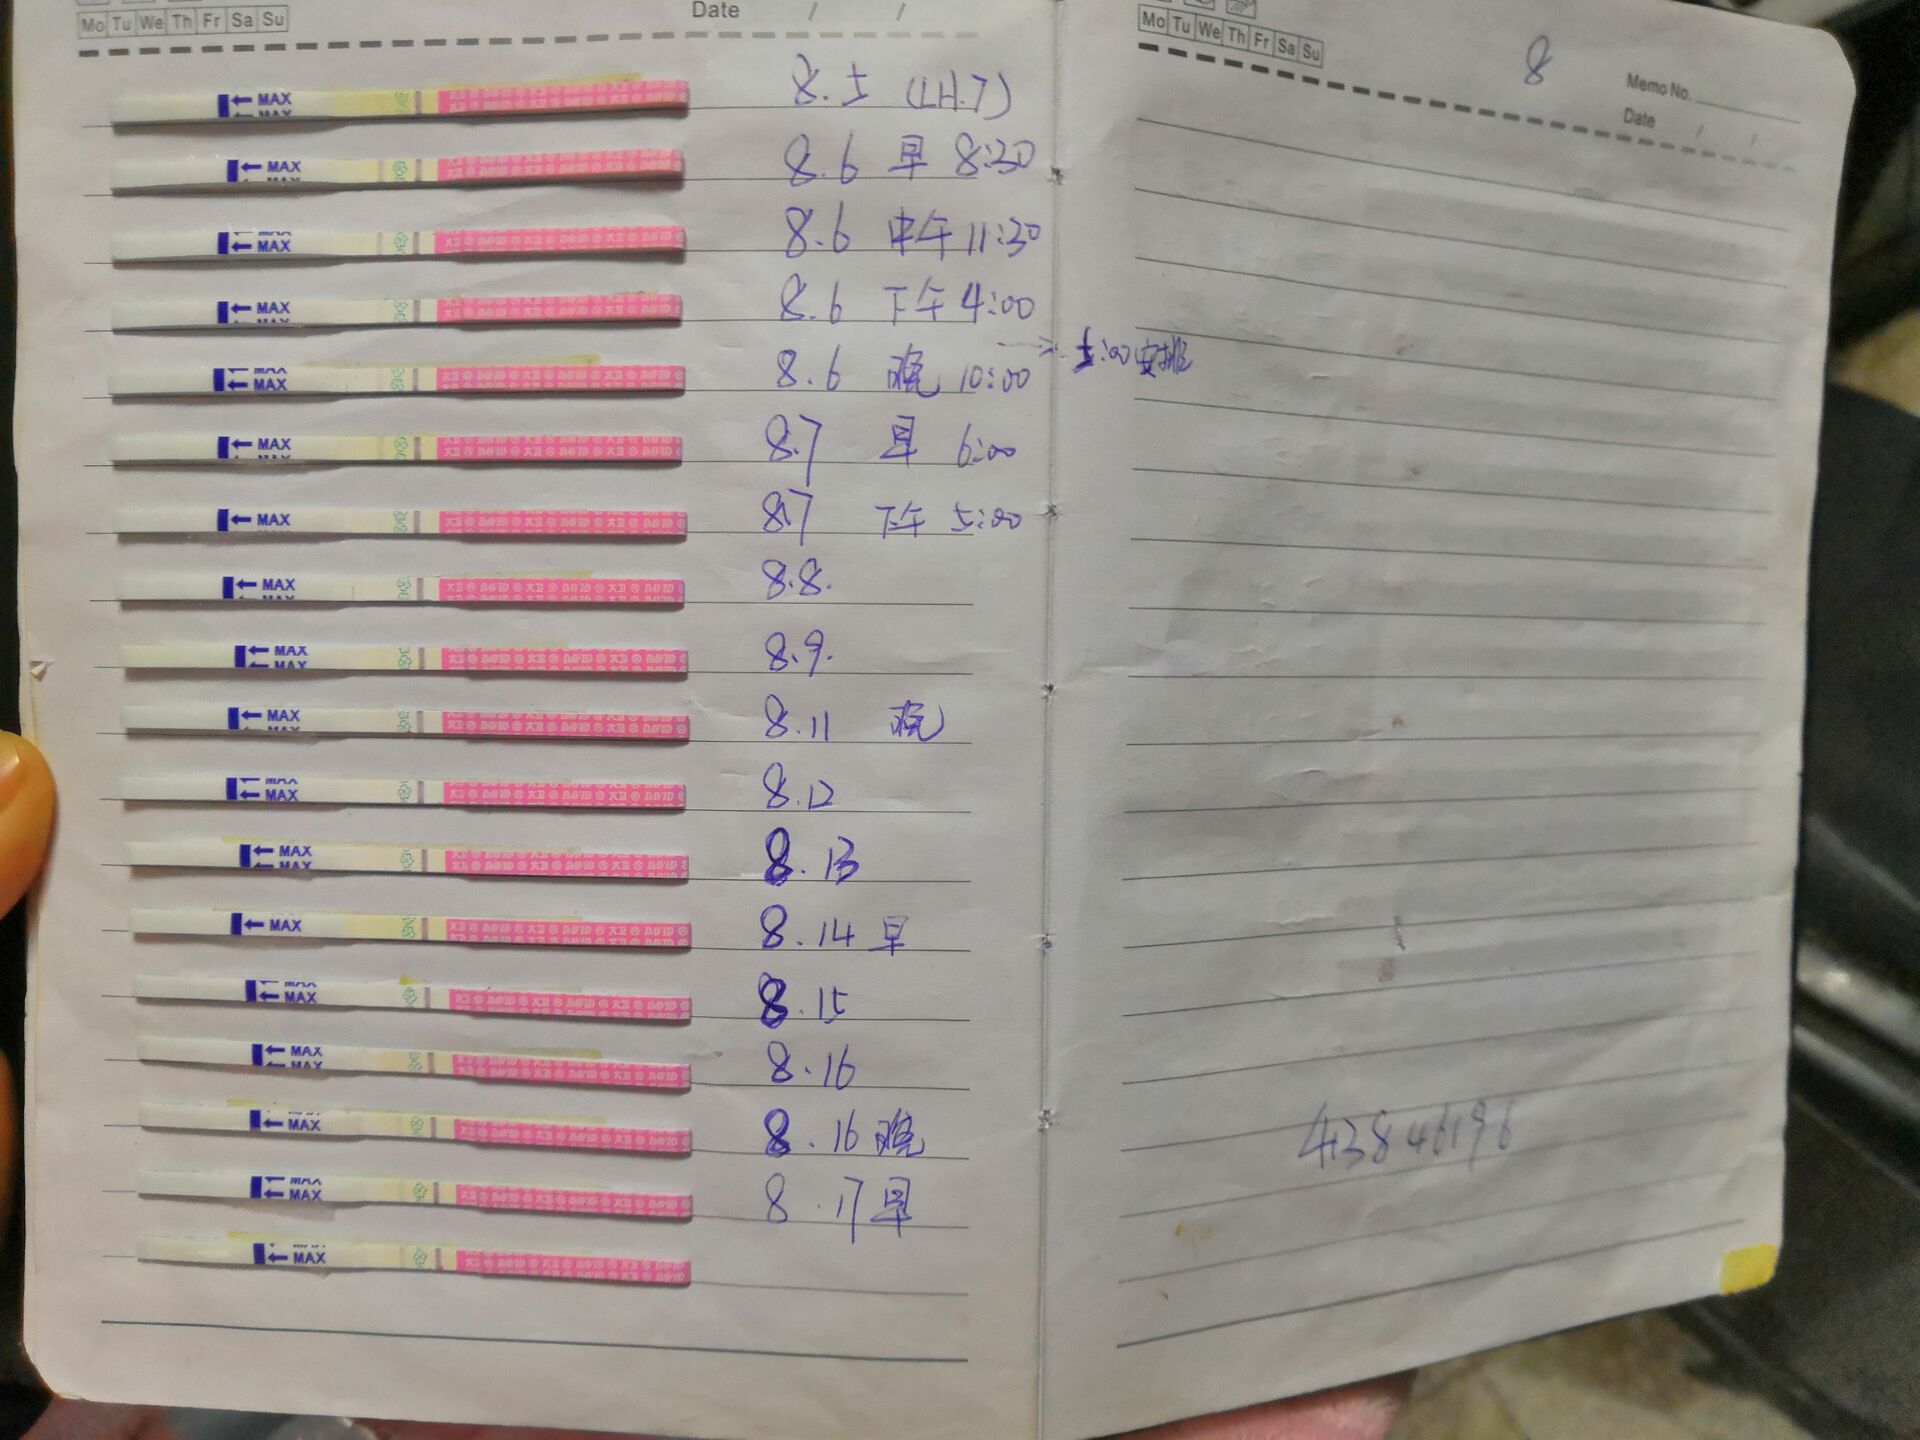 Mo Tu We Th Fr Sa Su
Date / /
MAX 8.5 (LH.7)
MAX 8.6 早 8:30
MAX 8.6 中午 11:30
MAX 8.6 下午 4:00
MAX 8.6 晚 10:00
MAX 8.7 早 6:00
MAX 8.7 下午 5:00
MAX 8.8.
MAX 8.9.
MAX 8.11 晚
MAX 8.12
MAX 8.13
MAX 8.14 早
MAX 8.15
MAX 8.16
MAX 8.16 晚
MAX 8.17 早
MAX
Mo Tu We Th Fr Sa Su
8
Memo No.
Date / /
5:00 安排
43846196